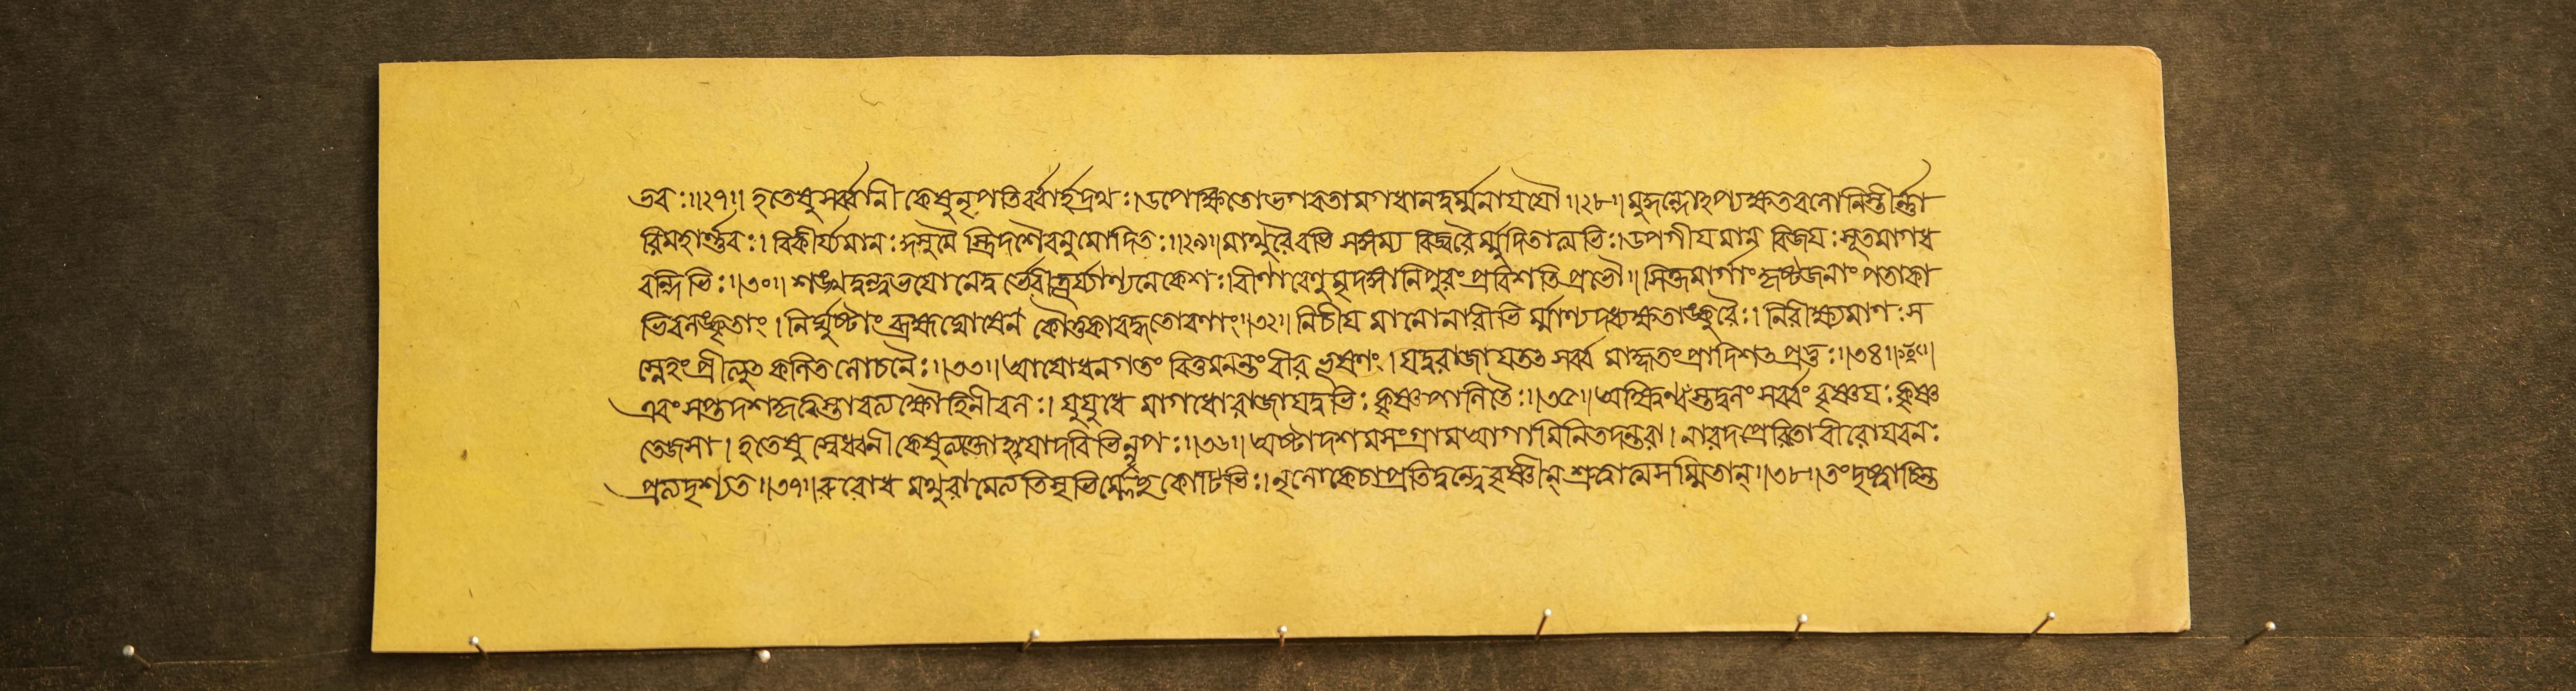 ভবঃ॥২৭॥ হতেষুসর্ব্বানীকেষুনৃপতির্ব্বার্হদ্রথঃ।উপেক্ষিতোভগবতামগধানদুর্ম্মনাযযৌ॥২৮॥মুকুন্দোঽপ্যক্ষতবলোনিস্তীর্ন্না
রিমহার্ন্নবঃ।বিকীর্য্যমানঃকুসুমৈস্ত্রিদশৈরনুমোদিতঃ॥২৯॥মাথুরৈরভিসঙ্গম্য বিজ্বরৈর্ম্মুদিতাত্মভিঃ।উপগীযমান বিজযঃসূতমাগধ
বন্দিভিঃ॥৩০॥শঙ্খদুন্দুভযোনেদুর্ভেরীতূর্য্যাণ্যনেকশঃ।বীণাবেণুমৃদঙ্গানিপুরংপ্রবিশতিপ্রভৌ॥সিক্তমার্গাংহৃষ্টজনাংপতাকা
ভিরলঙ্কৃতাং।নির্ঘুষ্টাংব্রহ্মঘোষেন কৌতুকাবদ্ধতোরণাং॥৩২॥নিচীযমানোনারীভির্ম্মাণ্যদধ্যক্ষতাঙ্কুরৈঃ।নিরীক্ষ্যমাণঃস
স্নেহংপ্রীত্যুৎকলিতলোচনৈঃ॥৩৩॥আযোধনগতংবিত্তমনন্তংবীরভূষণং।যদুরাজাযতৎসর্ব্বমাহৃতংপ্রাদিশৎপ্রভুঃ॥৩৪॥
এবংসপ্তদশকৃত্বস্তাবত্যক্ষৌহিনীবলঃ।যুযুধে মাগধোরাজাযদুভিঃকৃষ্ণপালিতৈঃ॥৩৫॥অক্ষিন্বংস্তদ্বলংসর্ব্বং বৃষ্ণযঃকৃষ্ণ
তেজসা।হতেষু স্বেষ্বনীকেষুত্যক্তোঽযাদরিভির্নৃপঃ॥৩৬॥অষ্টাদশমসংগ্রামআগামিনিতদন্তরা।নারদপ্রেরিতোবীরোযবনঃ
প্রত্যদৃশ্যত॥৩৭॥রুরোধ মথুরামেত্যতিসৃভির্ম্লেচ্ছকোটিভিঃ।নৃলোকেচাপ্রতিদ্বন্দ্বোবৃষ্ণীন্শ্রুত্বাত্মসম্মিতান্॥৩৮॥তংদৃষ্ট্বাচিন্ত